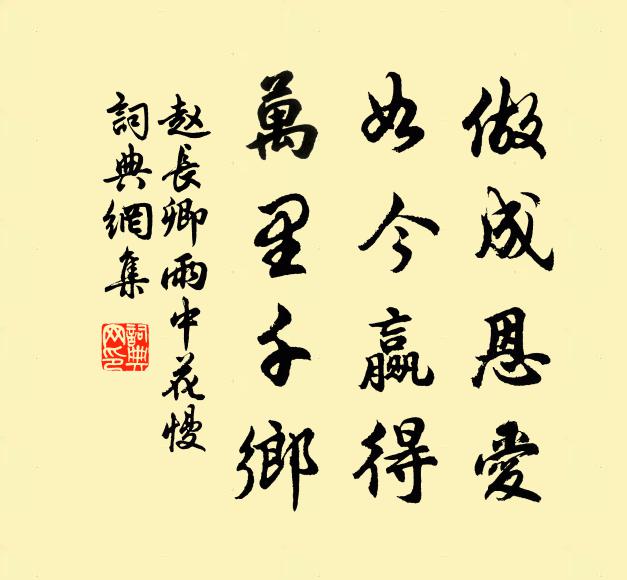 做成恩愛
如今贏得
萬里千鄉
赵長卿雨中花慢
詞典網集
詞典网印